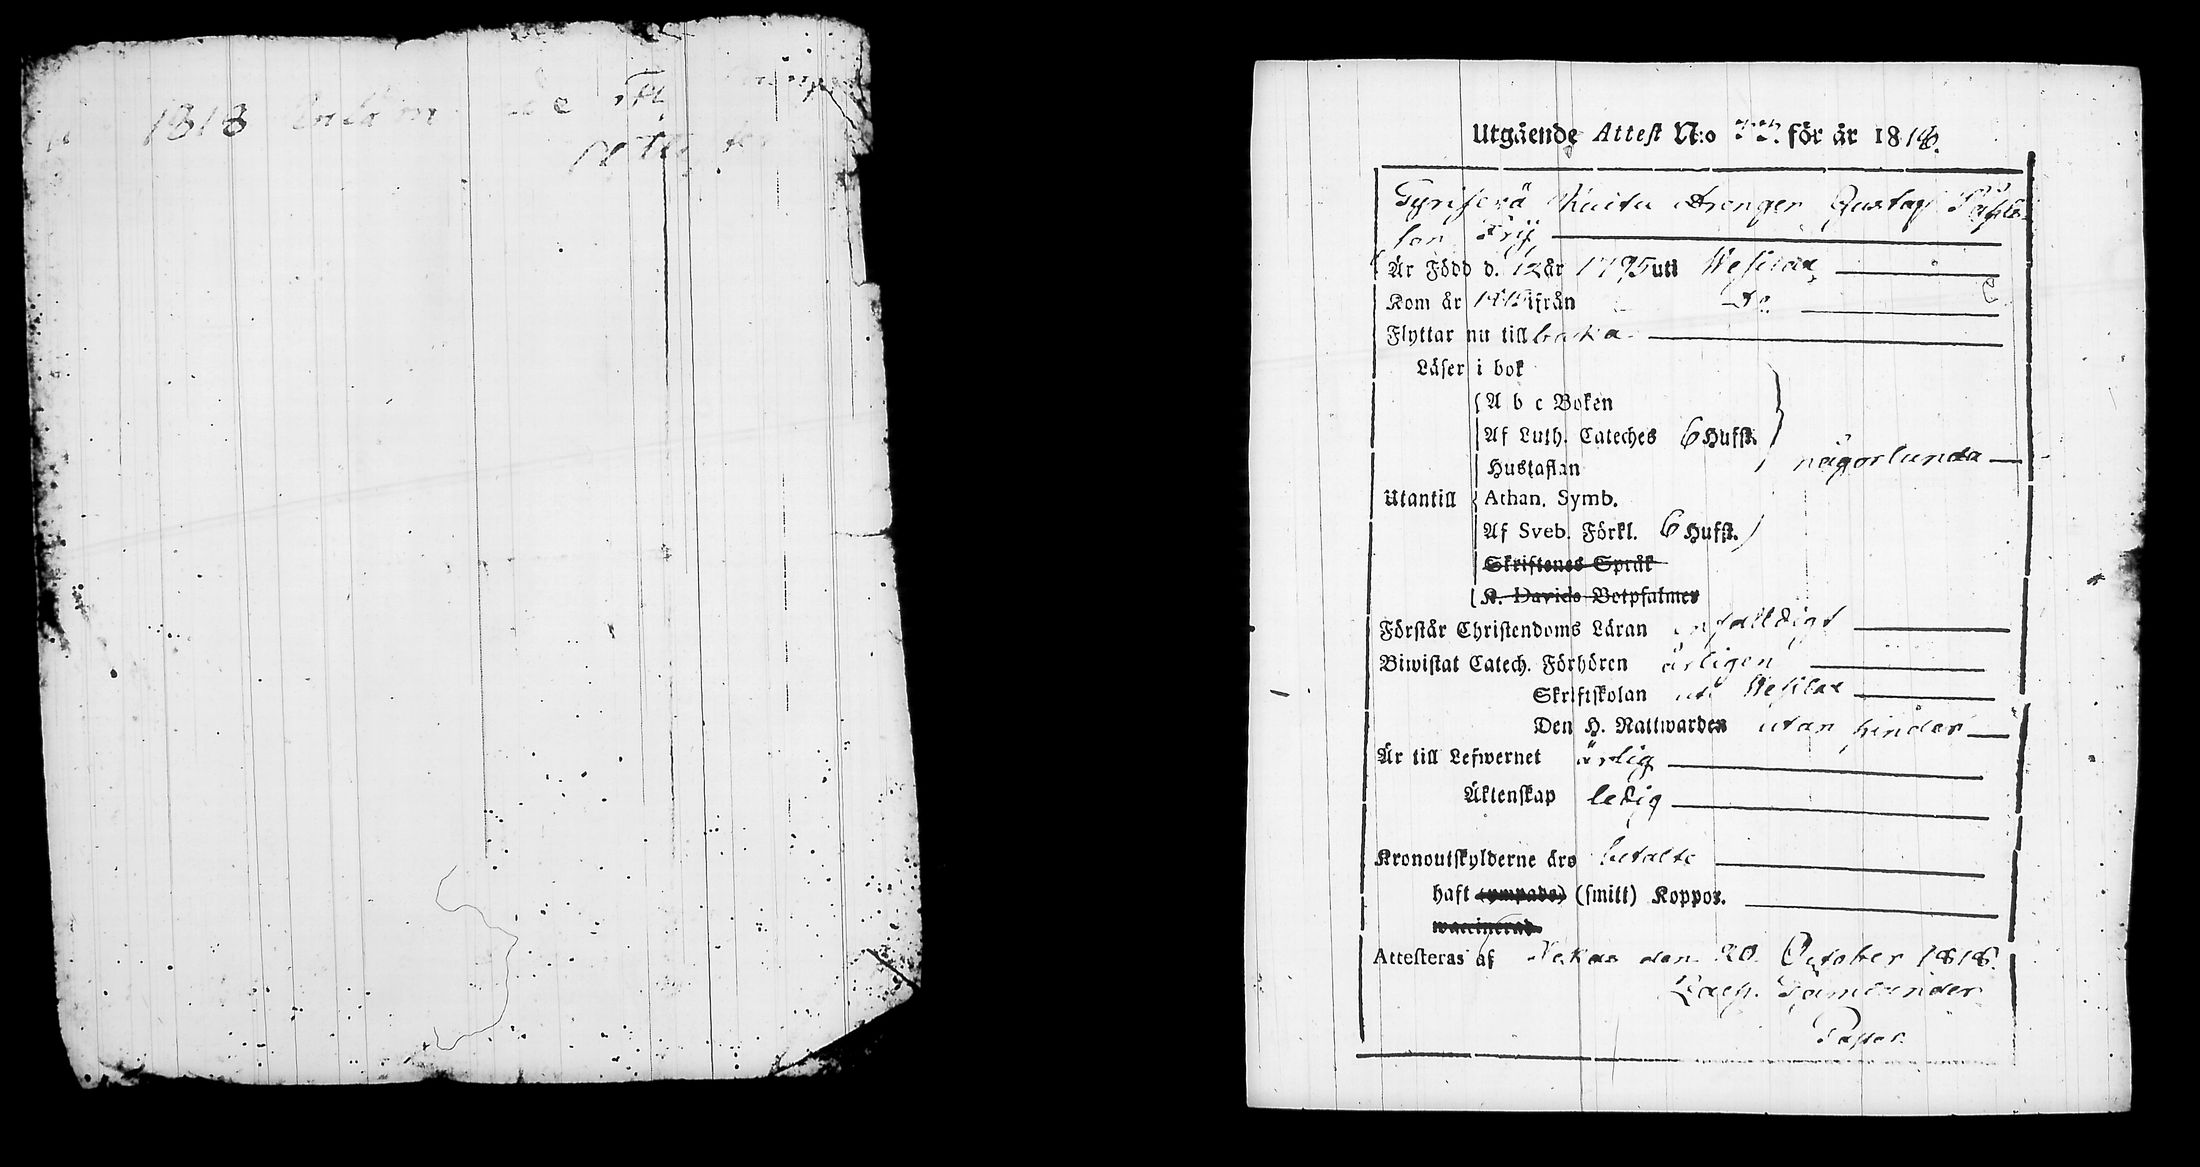 1818
Utgående Attest N:o för år 1818.
Tyrisevä Drengen Gustaf
Fri
Är Född d. 12 år 1795 uti Wesilax
Kom år 1815 ifrån Do
Flyttar nu till baka
Läser i bok
A b c Boken
Af Luth. Cateches 6 Hufst.
Hustaflan
någorlunda
Utantill Athan. Symb.
Af Sveb. Förkl. 6 Hufst.
Skriftenes Språk
K. Davids Botpsalmer
Förstår Christendoms Läran enfalldigt
Biwistat Catech. Förhören årligen
Skriftskolan uti Wesilax
Den H. Nattwarden utan hinder
Är till Lefwernet ärlig
Äktenskap ledig
Kronoutskylderne äro betalte
haft (ympade) (smitt) Koppor.
waccinerad.
Attesteras af den 20 October 1818.
Pastor